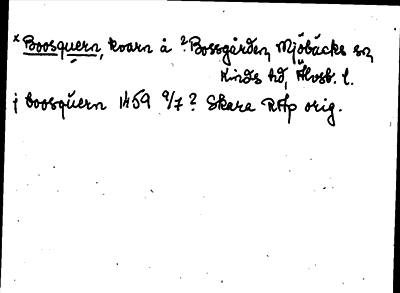 * Boosquern, kvarn å ? Bossgården, Mjöbäcks sn,
Kinds hd, Älvsb. l.
j boosquern 1459 9/7 ? Skara RAp orig.